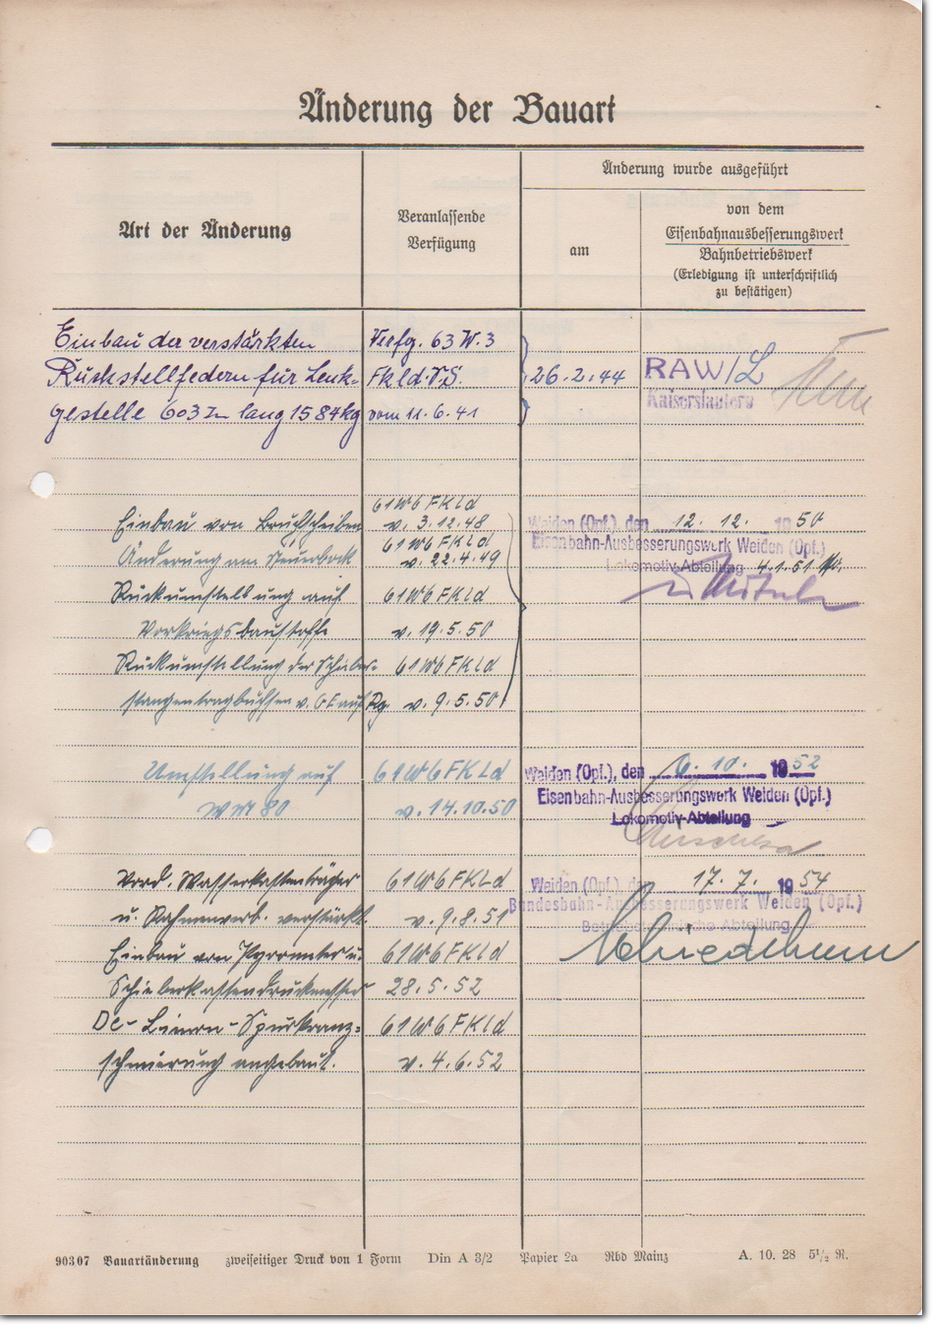 Änderung der Bauart
Art der Änderung
Veranlassende
Verfügung
Änderung wurde ausgeführt
am
von dem
Eisenbahnausbesserungswerk
Bahnbetriebswerk
(Erledigung ist unterschriftlich
zu bestätigen)
Einbau der verstärkten Verfg. 63 W.3
Rückstellfedern für Lenk- Fkld. 26.2.44 RAW/L
Kaiserslautern
gestelle 603 lang 1584 kg vom 11.6.41
61W6 FKld
Einbau von Bruchscheiben v. 3.12.48 Weiden (Opf.), den 12. 12. 1950
61W6 FKld Eisenbahn-Ausbesserungswerk Weiden (Opf.)
Änderung am Steuerbock v. 22.4.49 Lokomotiv-Abteilung 4.1.51
Rückumstellung auf 61W6 FKld
Vorkriegsbaustoffe v. 19.5.50
Rückumstellung der Schieber- 61W6 FKld
stangentragbuchsen v. GE auf Rg v. 9.5.50
Umstellung auf 61W6 FKLd Weiden (Opf.), den 6. 10. 1952
WM 80 v. 14.10.50 Eisenbahn-Ausbesserungswerk Weiden (Opf.)
Lokomotiv-Abteilung
Vord. Wasserkastenträger 61W6 FKLd Weiden (Opf.), den 17. 7. 1954
u. Rahmenverb. verstärkt. v. 9.8.51 Bundesbahn-Ausbesserungswerk Weiden (Opf.)
Abteilung
Einbau von Pyrometer u. 61W6 FKld
Schieberkastendruckmesser 28.5.52
De-Limon-Spurkranz- 61W6 FKld
schmierung angebaut. v. 4.6.52
903 07 Bauartänderung zweiseitiger Druck von 1 Form Din A 3/2 Papier 2a Rbd Mainz A. 10. 28 5½ R.